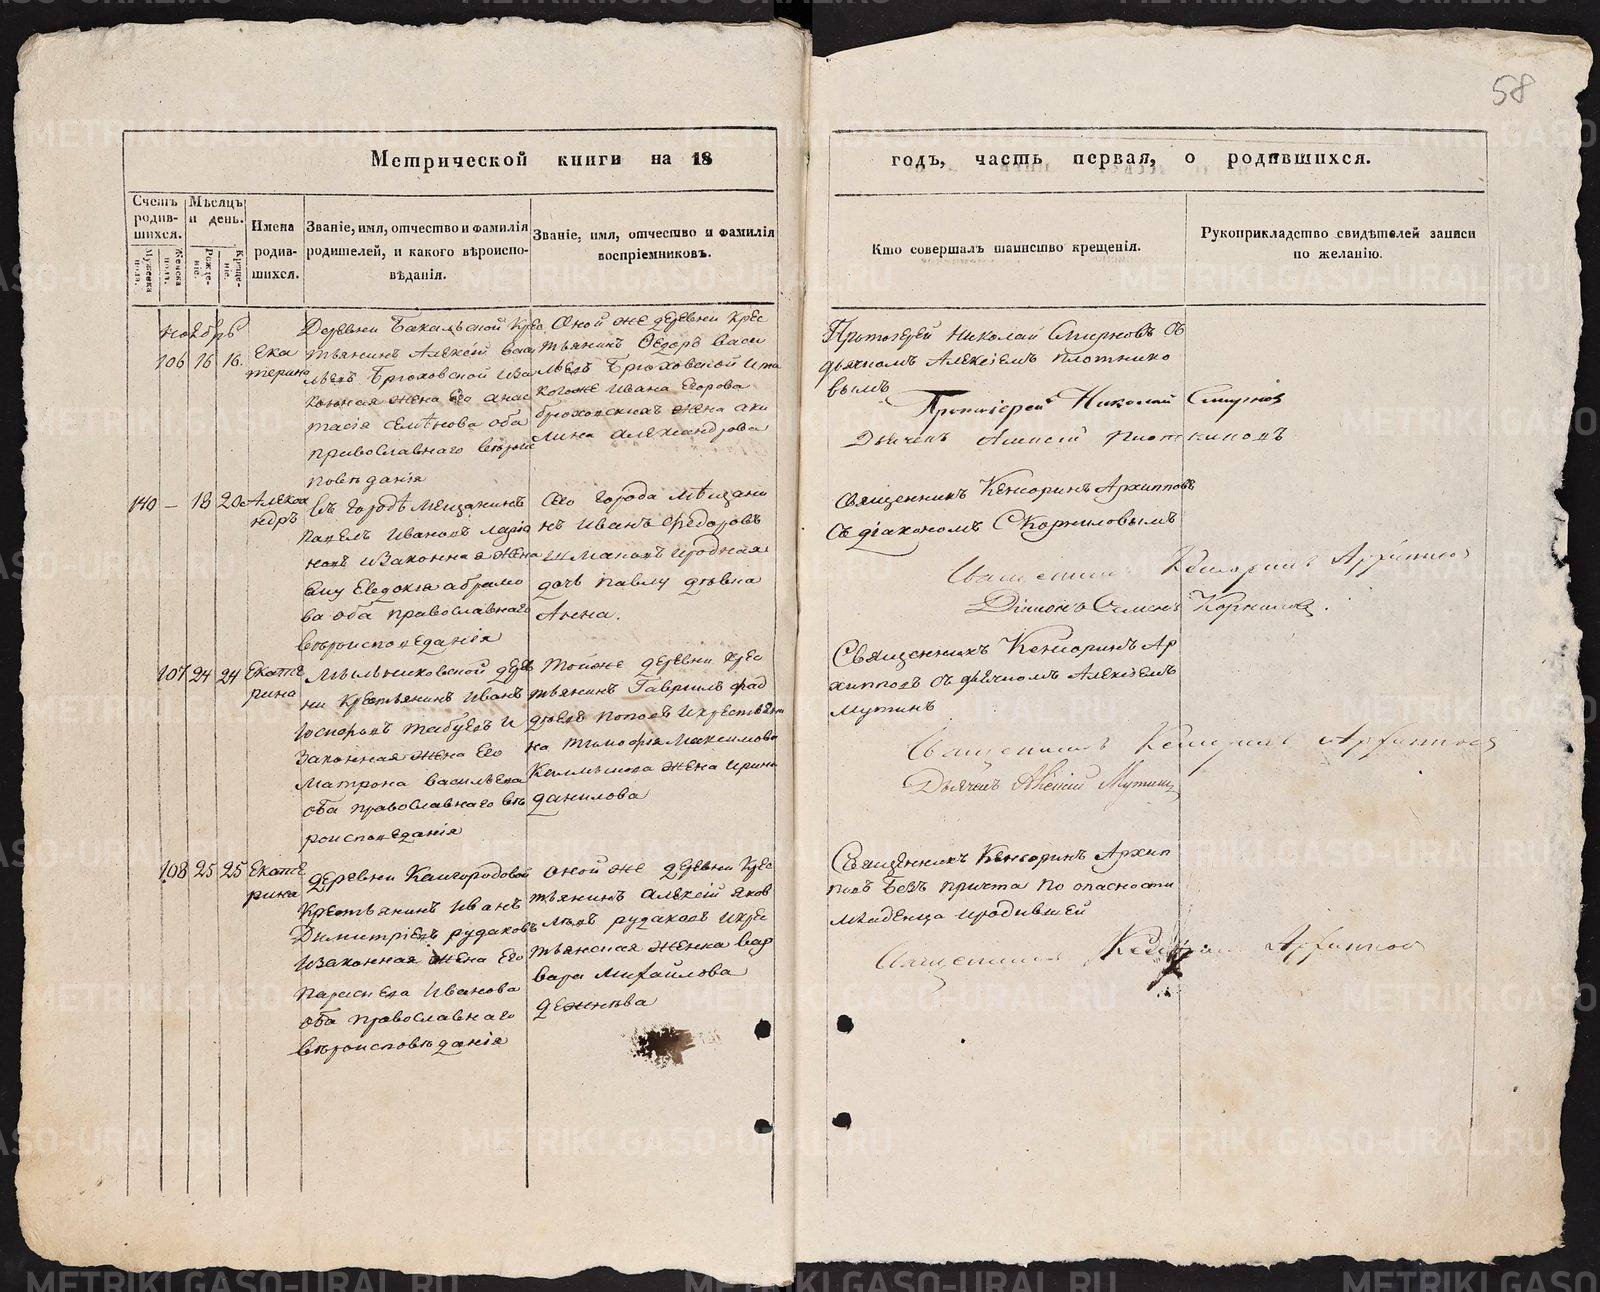 58
Метрической книги на 18
годъ, часть первая, о родившихся.
Счетъ родившихся.
Мужеска полъ.
Женска полъ.
Мѣсяцъ и день.
Рожденіе.
Крещеніе.
Имена родившихся.
Званіе, имя, отчество и фамилія
родителей, и какого вѣроиспо-
вѣданія.
Званіе, имя, отчество и фамилія
воспріемниковъ.
Кто совершалъ таинство крещенія.
Рукоприкладство свидѣтелей записи
по желанію.
Ноябрь
106 16 16.
Ека
терина
Деревни Бакальской крес
тьянинъ Алексій Васи
льевъ Брюховской и за
конная жена его Анас
тасія Семѣнова оба
православнаго вѣрои
повѣданія
Оной же деревни крес
тьянинъ Ѳедоръ Васи
льевъ Брюховской и та
когоже Ивана Егорова
Брюховскихъ жена Аки
лина Александрова
Протоіерей Николай Смирновъ съ
дьячкомъ Алексіемъ Плотнико
вымъ
Протоіерей Николай Смирнов
Дьячекъ Алексій
140 – 18 20
Алекса
ндръ
въ городѣ мещанинъ
Павелъ Ивановъ
и законная жена
ему Евдокія Абрамо
ва оба православнаго
вѣроисповеданія
Сего города мѣщани
нъ Иванъ Ѳедоровъ
и родная
дочь Павлу дѣвка
Анна.
Священникъ Кенсоринъ Архиповъ
съ діакономъ С Корниловымъ
Священникъ Кенсоринъ Архипов
Діаконъ Семенъ Корнилов.
107 24 24
Екате
рина
Мыльниковской дере
вни крестьянинъ Иванъ
Табуевъ и
законная жена его
Матрона Васильева
оба православнаго вѣ
роисповеданія
Тойже деревни крес
тьянинъ Гаврилъ Фад
деевъ Поповъ и крестьяни
на Тимофея Максимова
жена Ирина
Данилова
Священникъ Кенсоринъ Ар
хиповъ съ дьячкомъ Алексіемъ
Мутинъ
Священникъ Кенсоринъ Архипов
Дьячекъ Алексій Мутин
108 25 25
Екате
рина
деревни Кайгородовой
крестьянинъ Иванъ
Димитріевъ Рудаковъ
и законная жена его
Параскева Иванова
оба православнаго
вѣроисповѣданія
оной же деревни крес
тьянинъ Алексій Яков
левъ Рудаковъ и крес
тьянская женка Вар
вара Михайлова
Дежнева
Священникъ Кенсоринъ Архип
повъ безъ причта по опасности
младенца и родившей
Священникъ Кенсоринъ Архипов
METRIKI.GASO-URAL.RU